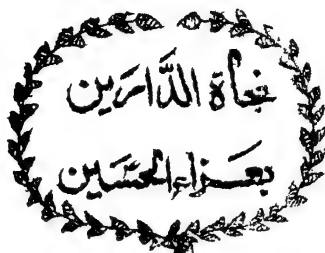 نجاة الدَّارين
بعزاء الحسَين